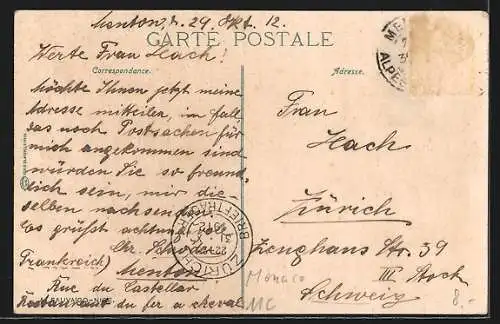 Menton, d. 29. Okt. 12.
CARTE POSTALE
Werte Frau Hach!
Correspondance.
Adresse.
Möchte Ihnen jetzt meine
Adresse mitteilen, im fall
das noch Postsachen für
mich angekommen sind
würden Sie so freund
lich sein, mir die
selben nachsenden.
Es grüsst achtungs
Menton
Frankreich)
Rue du Castellar
Restaurant du fer a cheval
Frau
Hach
Zürich
Zeughaus Str. 39
III Stock
Schweiz
Monaco
MC
8.-
ZÜRICH
BRIEFTRÄGER
ALPES